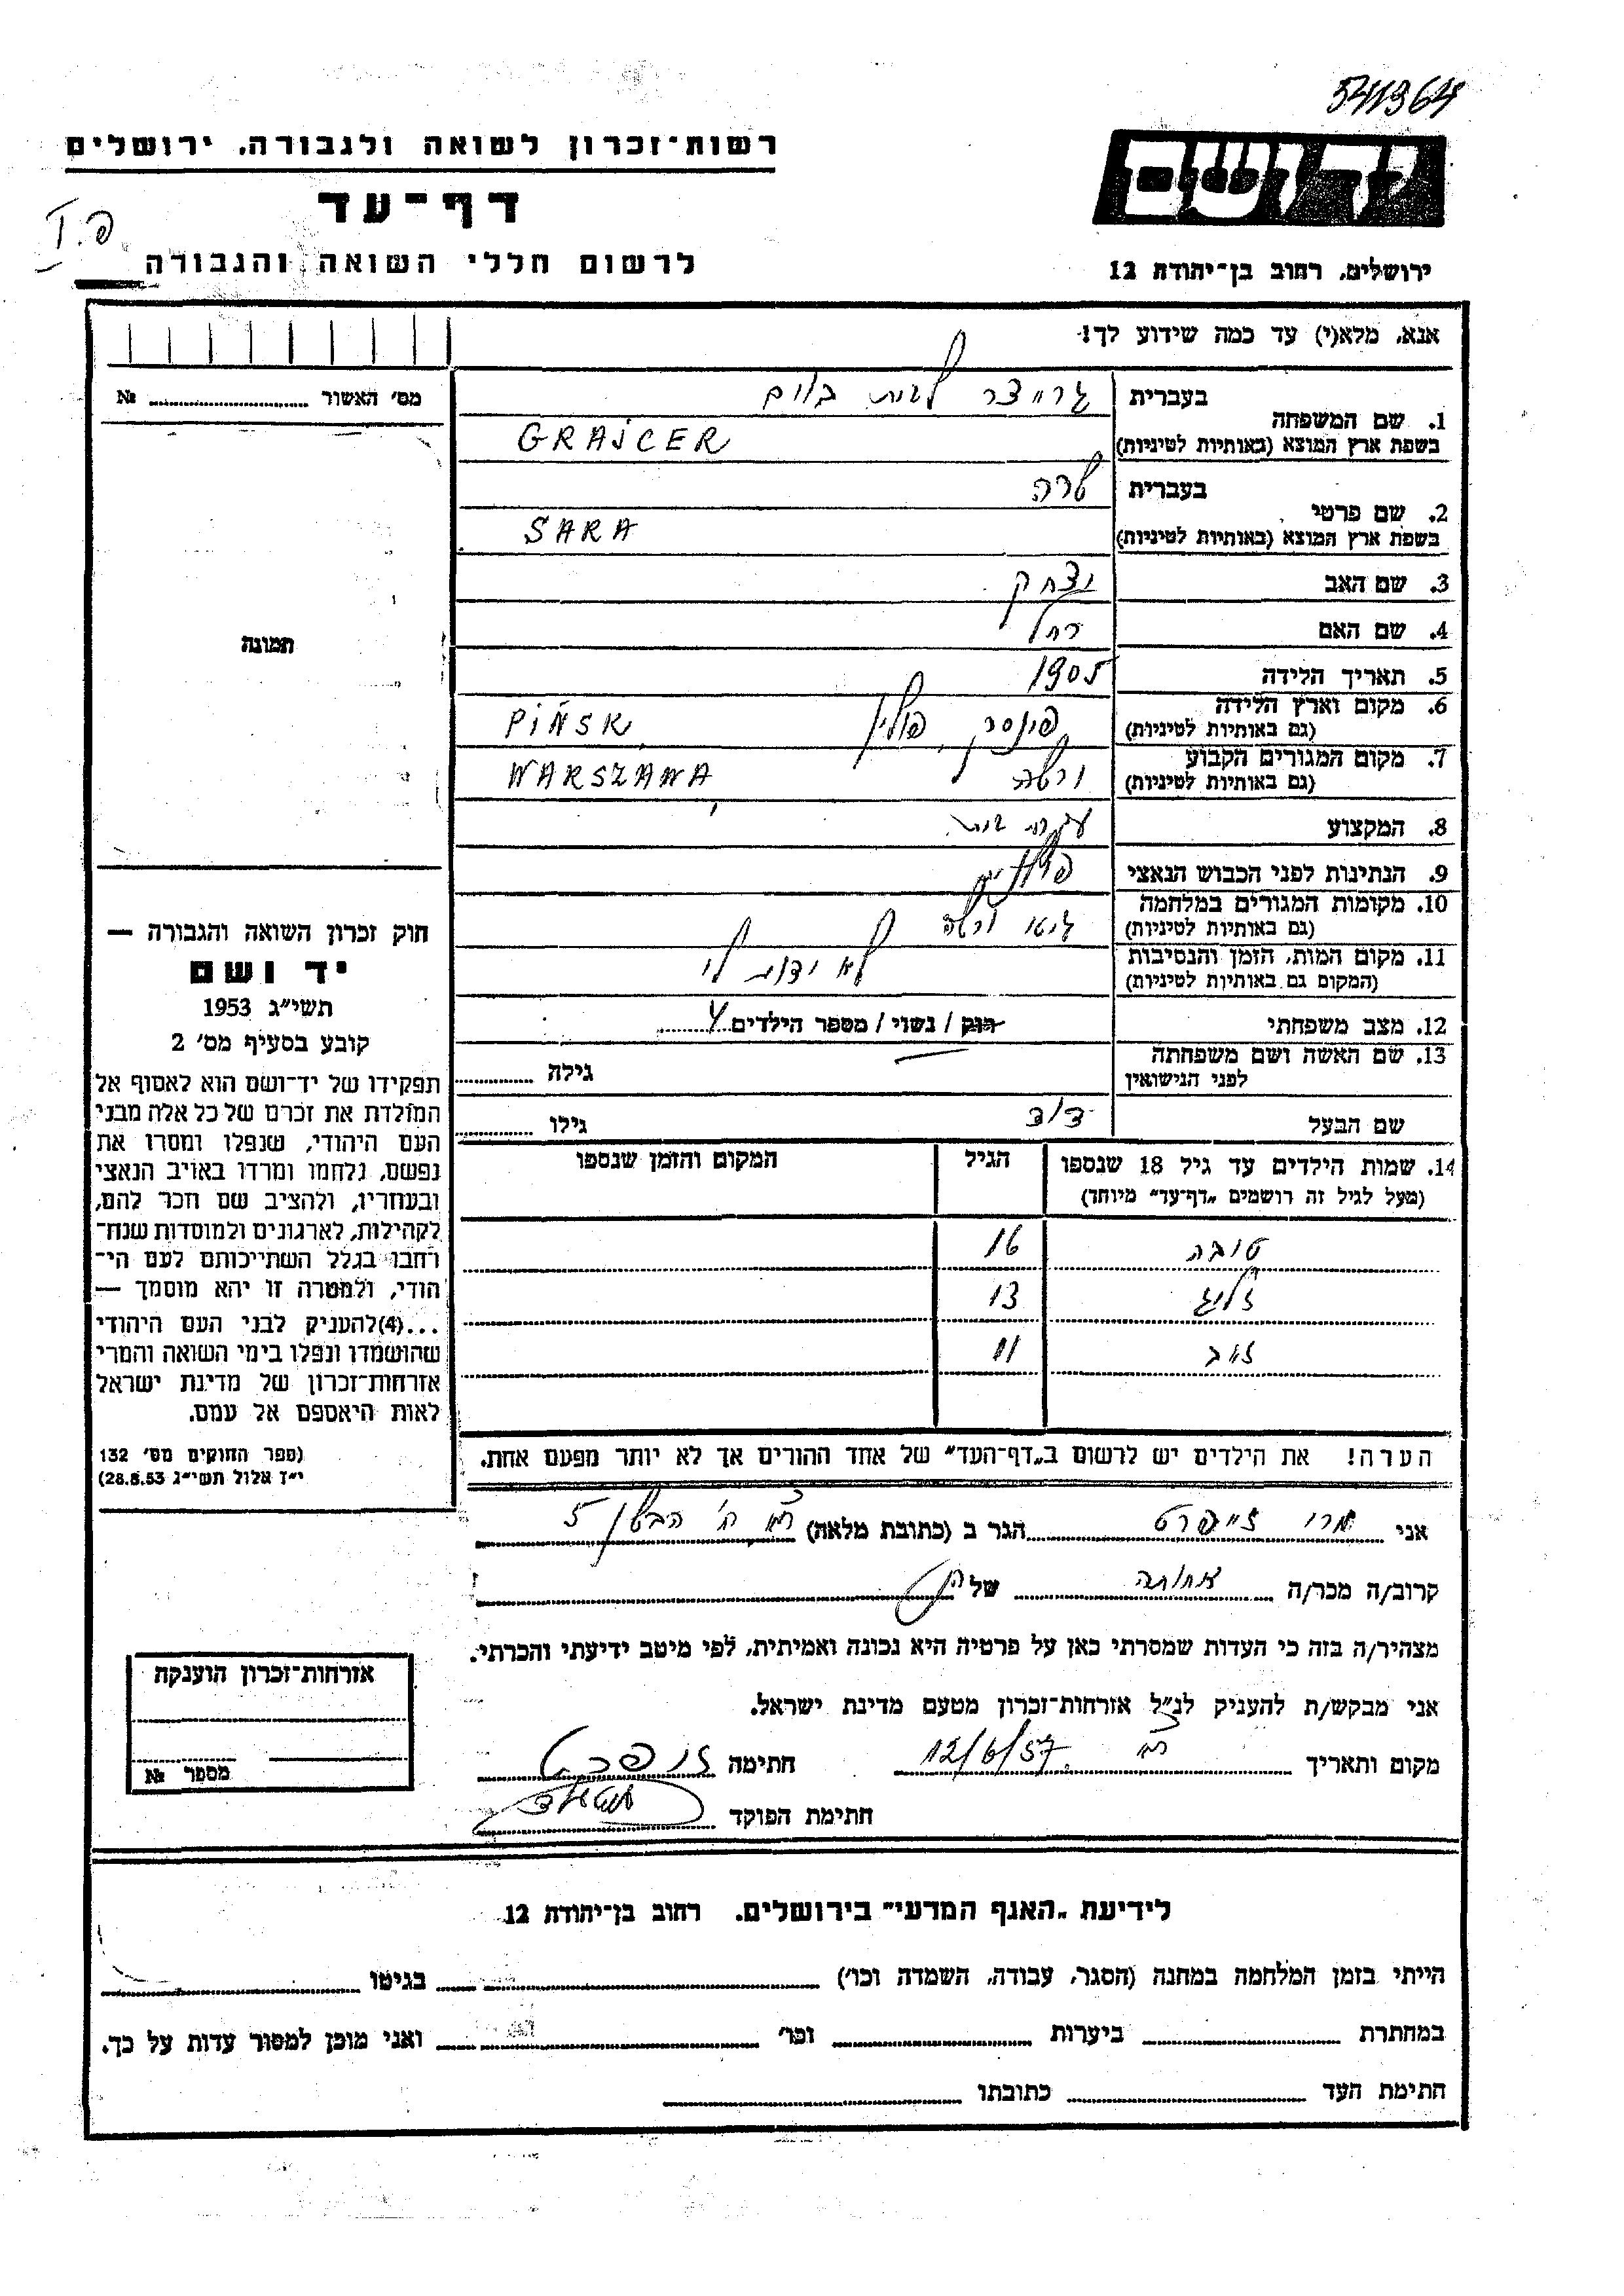 541964
רשות־זכרון לשואה ולגבורה. ירושלים
יד ושם
דף־עד
פ.I
לרשום חללי השואה והגבורה
ירושלים. רחוב בן־יהודה 12
אנא. מלא(י) עד כמה שידוע לך!
1. שם המשפחה
בעברית גרייצר לבית בלום
בשפת ארץ המוצא (באותיות לטיניות) GRAJCER
2. שם פרטי
בעברית שרה
בשפת ארץ המוצא (באותיות לטיניות) SARA
3. שם האב יצחק
4. שם האם רחל
5. תאריך הלידה 1905
6. מקום וארץ הלידה
(גם באותיות לטיניות) פינסק, פולין PIŃSK
7. מקום המגורים הקבוע
(גם באותיות לטיניות) ורשה WARSZAWA
8. המקצוע עקרת בית
9. הנתינות לפני הכבוש הנאצי
10. מקומות המגורים במלחמה
(גם באותיות לטיניות) גיטו ורשה
11. מקום המות. הזמן והנסיבות
(המקום גם באותיות לטיניות) לא ידוע לי
12. מצב משפחתי רוק / נשוי / מספר הילדים 4
13. שם האשה ושם משפחתה
לפני הנישואין גילה
שם הבעל דוד גילו
14. שמות הילדים עד גיל 18 שנספו הגיל המקום והזמן שנספו
(מעל לגיל זה רושמים „דף־עד” מיוחד)
טובה 16
זליג 13
זאב 11
הערה! את הילדים יש לרשום ב„דף־העד” של אחד ההורים אך לא יותר מפעם אחת.
מס׳ האשור №
תמונה
חוק זכרון השואה והגבורה —
יד ושם
תשי״ג 1953
קובע בסעיף מס׳ 2
תפקידו של יד־ושם הוא לאסוף אל
המולדת את זכרם של כל אלה מבני
העם היהודי, שנפלו ומסרו את
נפשם, נלחמו ומרדו באויב הנאצי
ובעוזריו, ולהציב שם וזכר להם,
לקהילות, לארגונים ולמוסדות שנח־
רחבו בגלל השתייכותם לעם הי־
הודי, ולמטרה זו יהא מוסמך —
...(4)להעניק לבני העם היהודי
שהושמדו ונפלו בימי השואה והמרי
אזרחות־זכרון של מדינת ישראל
לאות היאספם אל עמם.
(ספר החוקים מס׳ 132
י״ז אלול תשי״ג 28.8.53)
אני זייפרט הגר ב (כתובת מלאה) 5
קרוב/ה מכר/ה אחותה של
מצהיר/ה בזה כי העדות שמסרתי כאן על פרטיה היא נכונה ואמיתית, לפי מיטב ידיעתי והכרתי.
אני מבקש/ת להעניק לנ״ל אזרחות־זכרון מטעם מדינת ישראל.
מקום ותאריך 12/6/57 חתימה
חתימת הפוקד
אזרחות־זכרון הוענקה
מספר №
לידיעת „האגף המדעי” בירושלים. רחוב בן־יהודה 12
הייתי בזמן המלחמה במחנה (הסגר, עבודה, השמדה וכו׳) בגיטו
במחתרת ביערות וכו׳ ואני מוכן למסור עדות על כך.
חתימת העד כתובתו